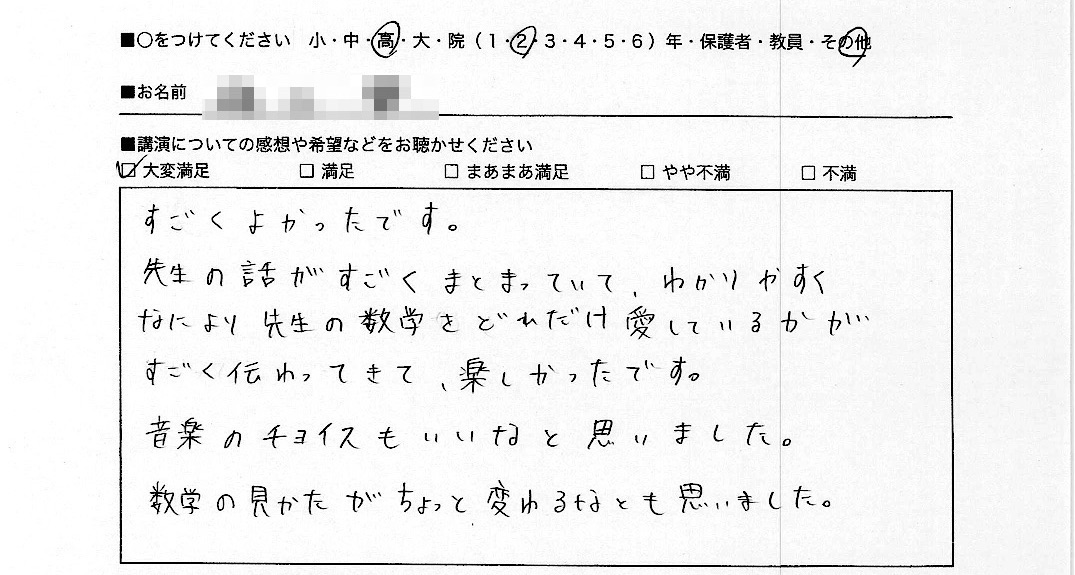 ■○をつけてください 小・中・高・大・院(1・2・3・4・5・6)年・保護者・教員・その他
■お名前
■講演についての感想や希望などをお聴かせください
☑ 大変満足 □ 満足 □ まあまあ満足 □ やや不満 □ 不満
すごくよかったです。
先生の話がすごくまとまっていて、わかりやすく
なにより先生の数学をどれだけ愛しているかが
すごく伝わってきて、楽しかったです。
音楽のチョイスもいいなと思いました。
数学の見かたがちょっと変わるなとも思いました。